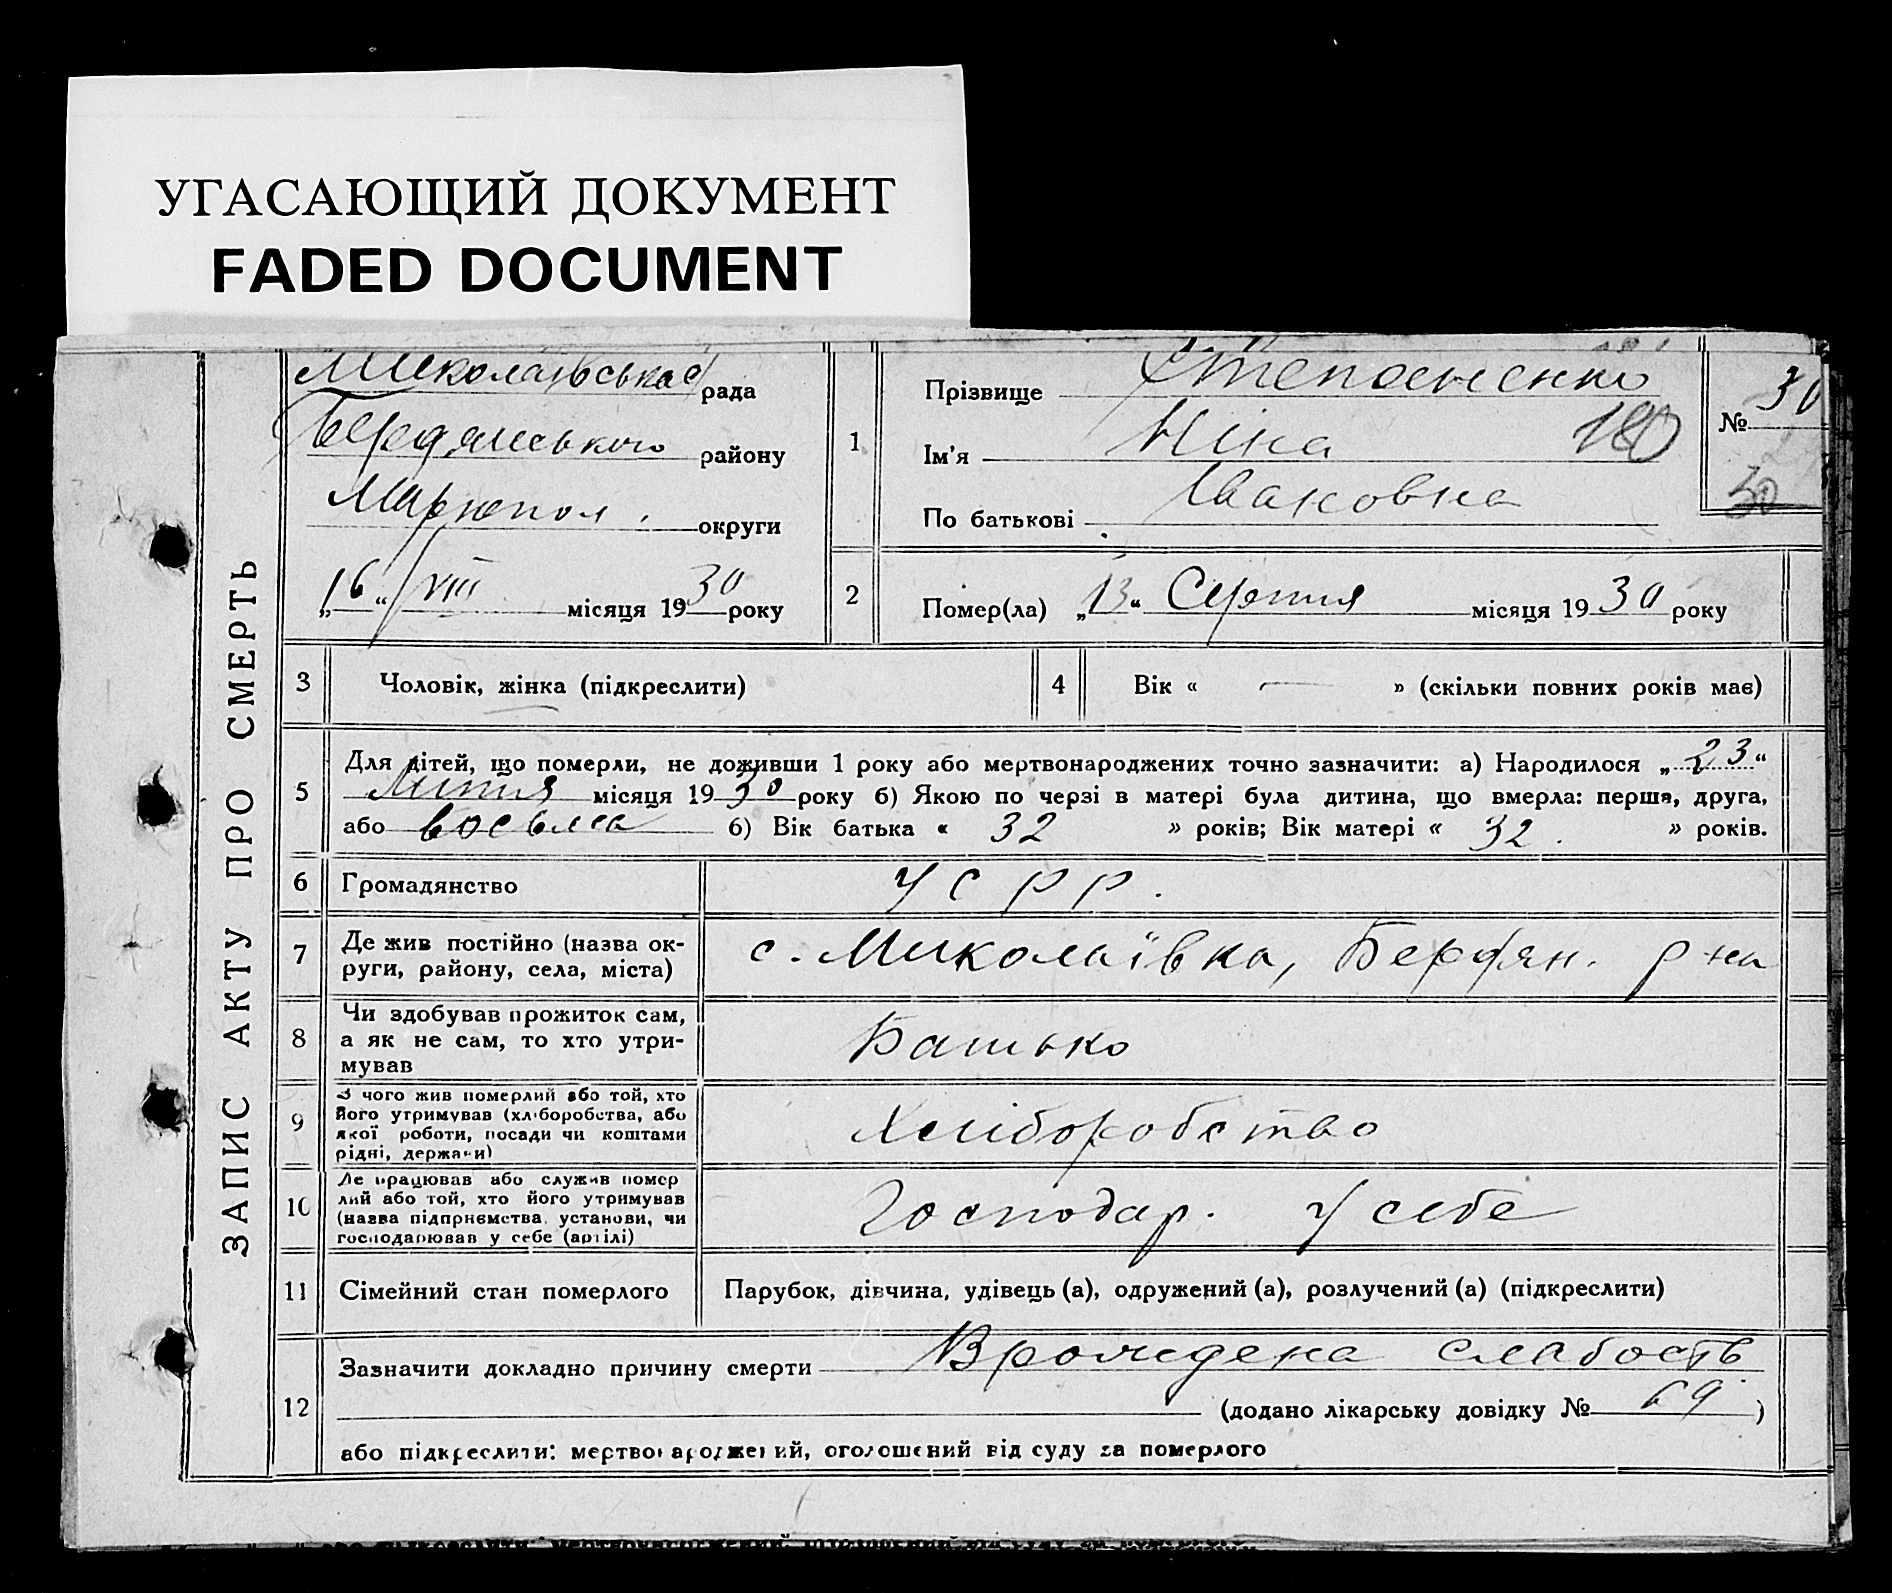 УГАСАЮЩИЙ ДОКУМЕНТ
FADED DOCUMENT
ЗАПИС АКТУ ПРО СМЕРТЬ
Миколаївська рада
Бердянського району
Маріюпол. округи
„16“ VIII місяця 1930 року
1
Прізвище Степаненко
Ім'я Ніна 180
По батькові Івановна
№ 30
30
2
Помер(ла) „13“ Серпня місяця 1930 року
3
Чоловік, жінка (підкреслити)
4
Вік « — » (скільки повних років має)
5
Для дітей, що померли, не доживши 1 року або мертвонароджених точно зазначити: а) Народилося „23“
Липня місяця 1930 року б) Якою по черзі в матері була дитина, що вмерла: перша, друга,
або восьма б) Вік батька « 32 » років; Вік матері « 32. » років.
6
Громадянство
УСРР.
7
Де жив постійно (назва ок-
руги, району, села, міста)
с. Миколаївка, Бердян. р-на
8
Чи здобував прожиток сам,
а як не сам, то хто утри-
мував
Батько
9
З чого жив померлий або той, хто
його утримував (хліборобства, або
якої роботи, посади чи коштами
рідні, держави)
Хліборобство
10
Де працював або служив помер
лий або той, хто його утримував
(назва підприємства, установи, чи
господарював у себе (артілі)
Господар. У себе
11
Сімейний стан померлого
Парубок, дівчина, удівець (а), одружений (а), розлучений (а) (підкреслити)
12
Зазначити докладно причину смерти Врождена слабость
(додано лікарську довідку № 69)
або підкреслити: мертвонароджений, оголошений від суду за померлого